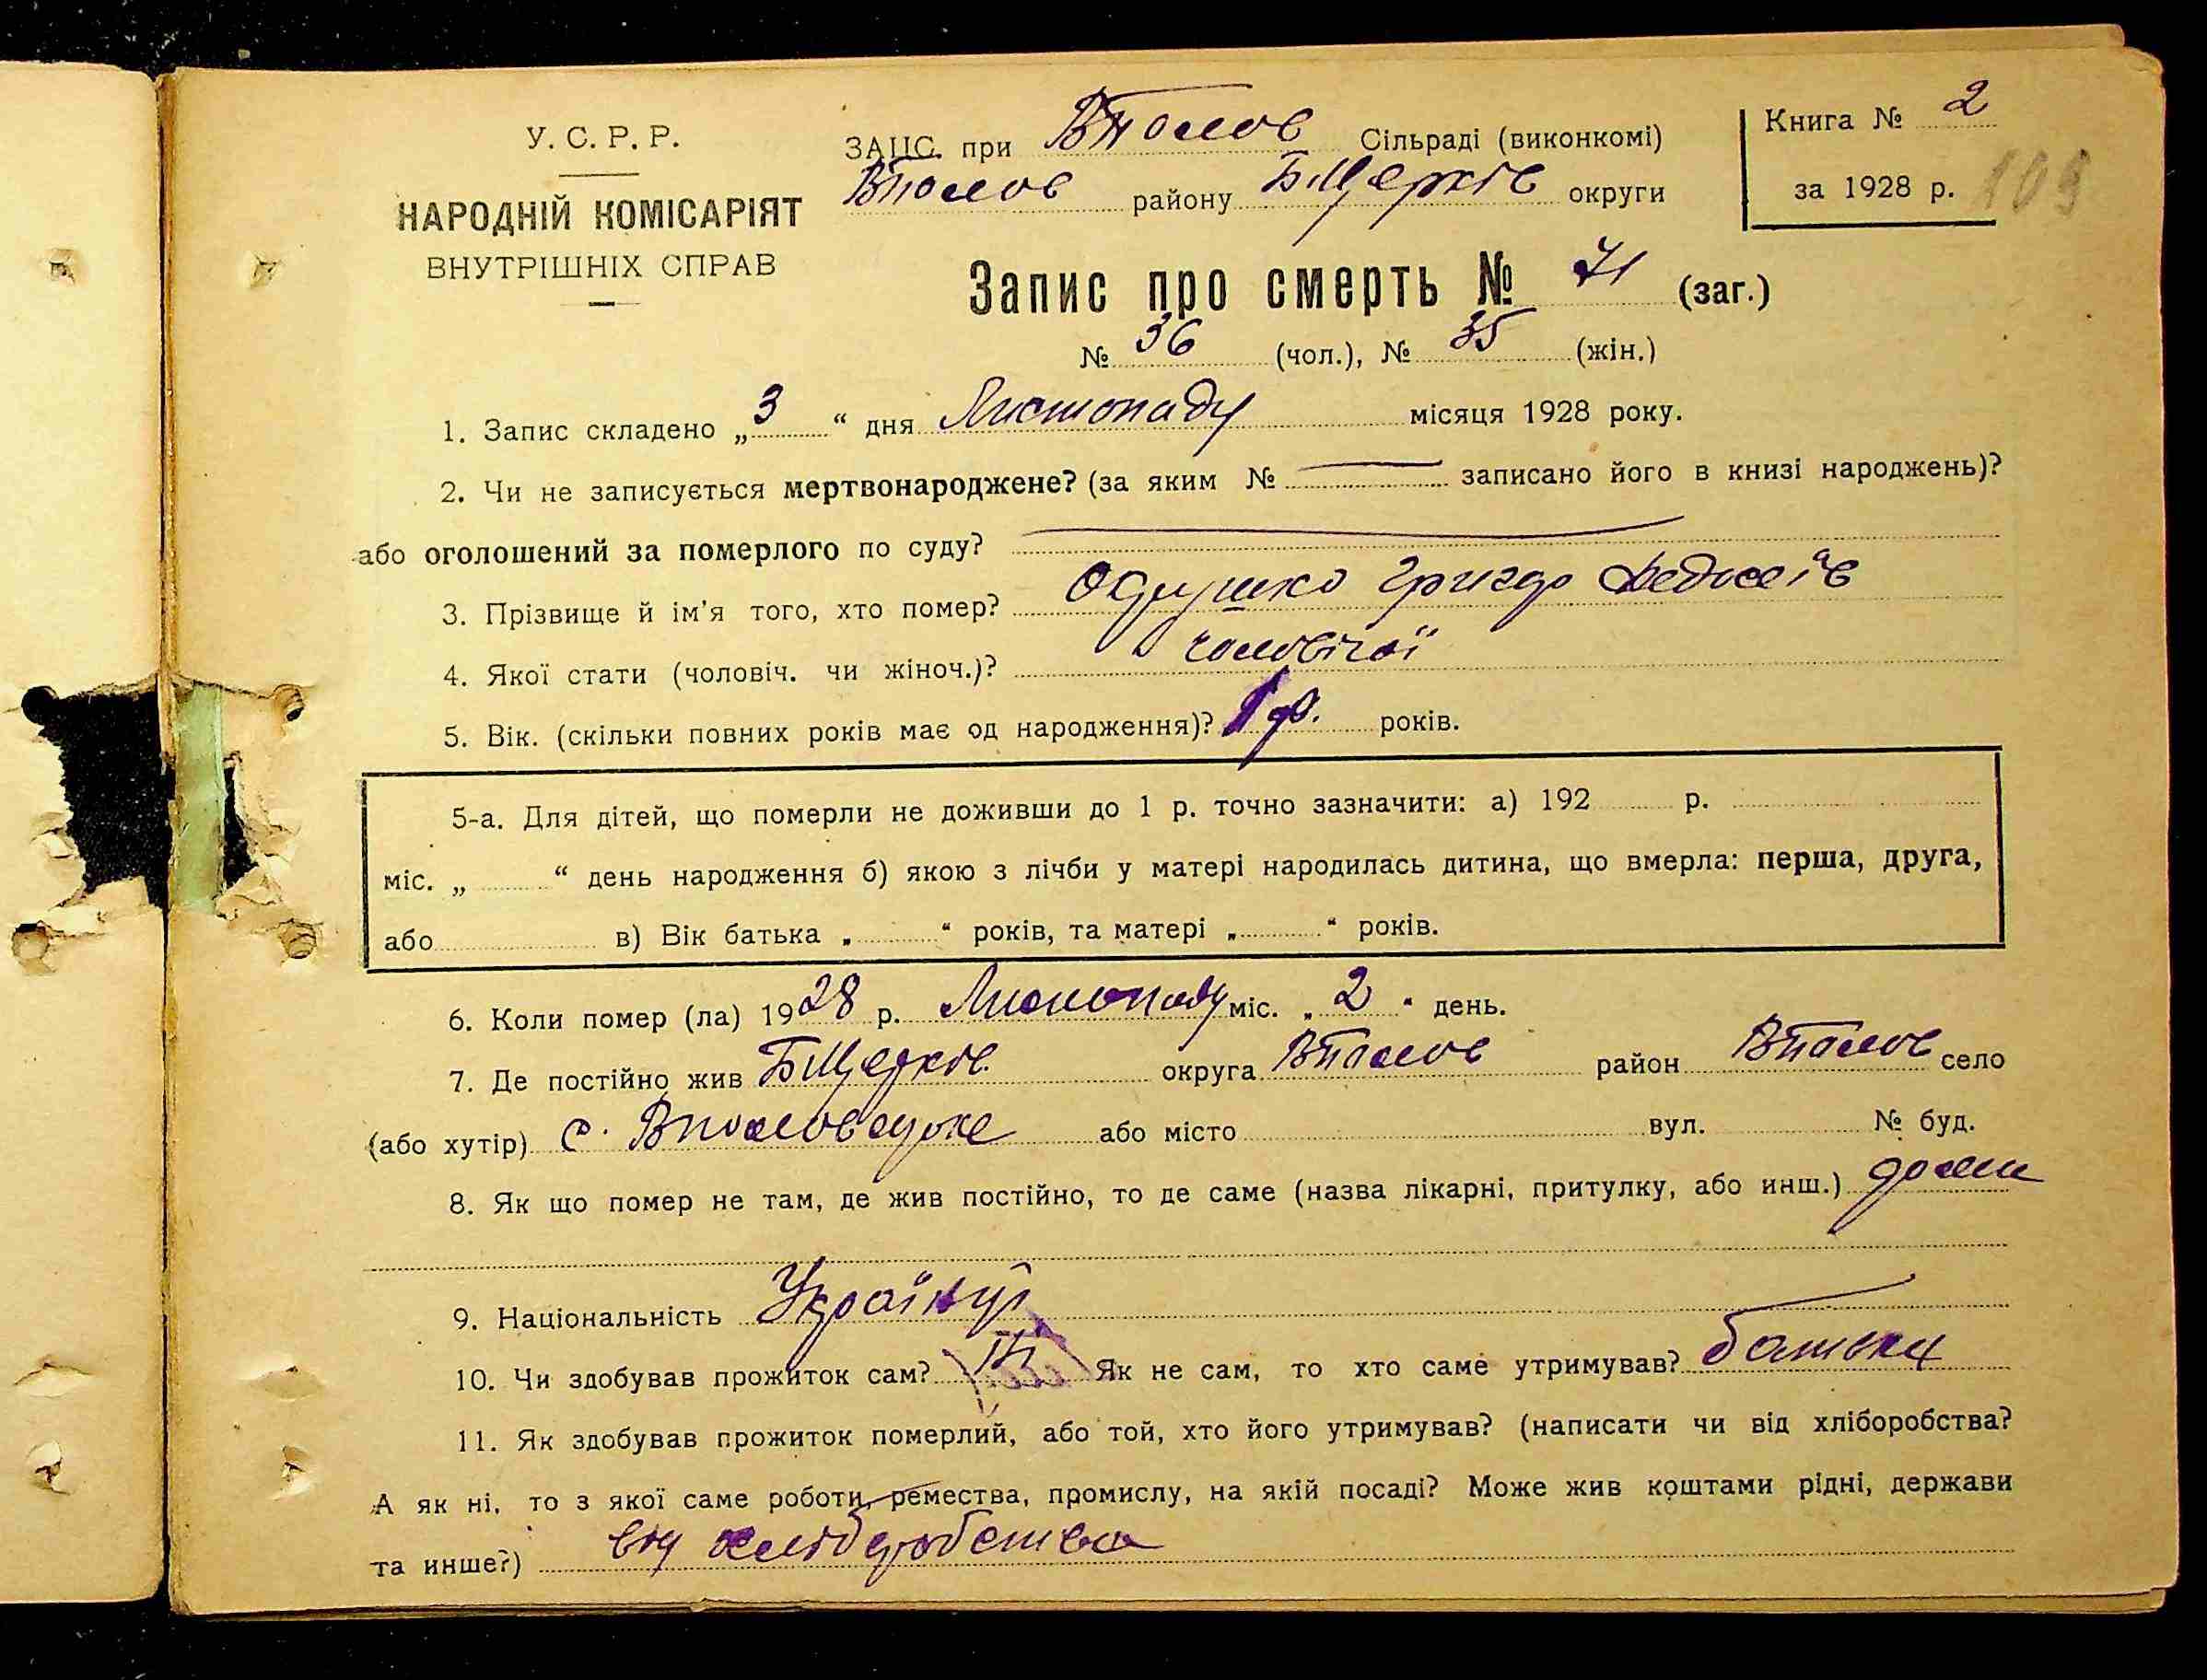 У. С. Р. Р.
НАРОДНІЙ КОМІСАРІЯТ
ВНУТРІШНІХ СПРАВ
ЗАЦС. при Вполов Сільраді (виконкомі)
Вполов району БЦерків округи
Книга № 2
за 1928 р. 109
Запис про смерть № 71 (заг.)
№ 36 (чол.), № 35 (жін.)
1. Запис складено „ 3 “ дня Листопаду місяця 1928 року.
2. Чи не записується мертвонароджене? (за яким № — записано його в книзі народжень)?
або оголошений за померлого по суду? —
3. Прізвище й ім'я того, хто помер? Григор
4. Якої стати (чоловіч. чи жіноч.)? чоловічої
5. Вік. (скільки повних років має од народження)? 1 р. років.
5-а. Для дітей, що померли не доживши до 1 р. точно зазначити: а) 192 р.
міс. „ “ день народження б) якою з лічби у матері народилась дитина, що вмерла: перша, друга,
або в) Вік батька „ “ років, та матері „ “ років.
6. Коли помер (ла) 1928 р. Листопаду міс. „ 2 “ день.
7. Де постійно жив БЦерків. округа Вполов район Вполов село
(або хутір) с. Вполовецьке або місто вул. № буд.
8. Як що помер не там, де жив постійно, то де саме (назва лікарні, притулку, або инш.) дома
9. Національність Українці
10. Чи здобував прожиток сам? Як не сам, то хто саме утримував? батьки
11. Як здобував прожиток померлий, або той, хто його утримував? (написати чи від хліборобства?
А як ні, то з якої саме роботи, ремества, промислу, на якій посаді? Може жив коштами рідні, держави
та инше?) від хліборобства